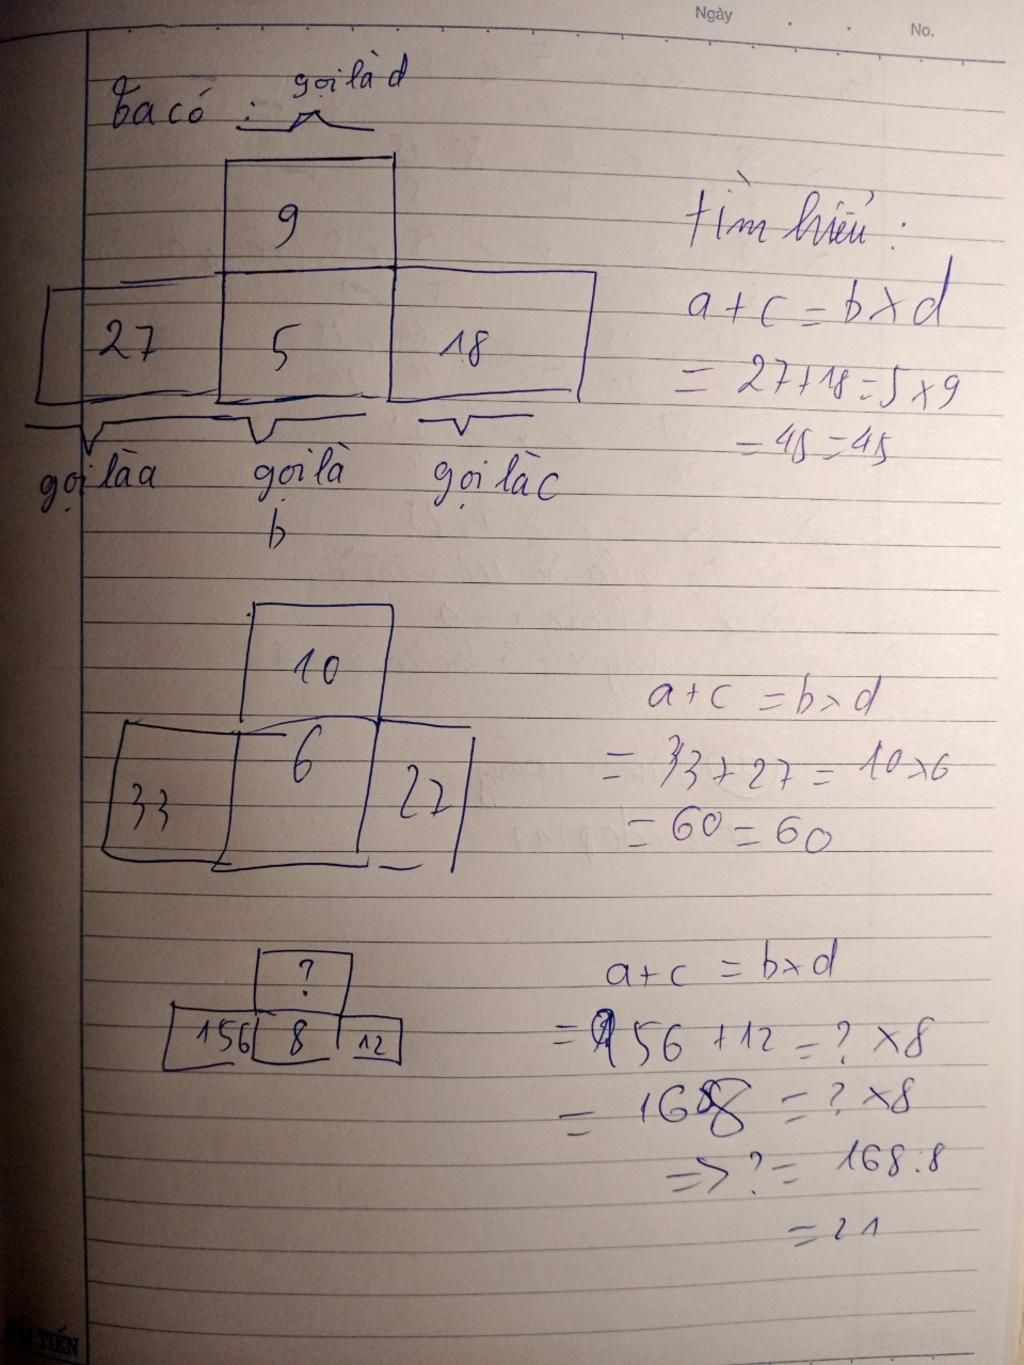 Ngày
No.
gọi là d
Ta có :
9
27 5 18
gọi là a gọi là gọi là c
b
tìm hiểu :
a + c = b x d
= 27 + 18 = 5 x 9
= 45 = 45
10
33 6 27
a + c = b x d
= 33 + 27 = 10 x 6
= 60 = 60
?
156 8 12
a + c = b x d
= 156 + 12 = ? x 8
= 168 = ? x 8
=> ? = 168 : 8
= 21
TIẾN